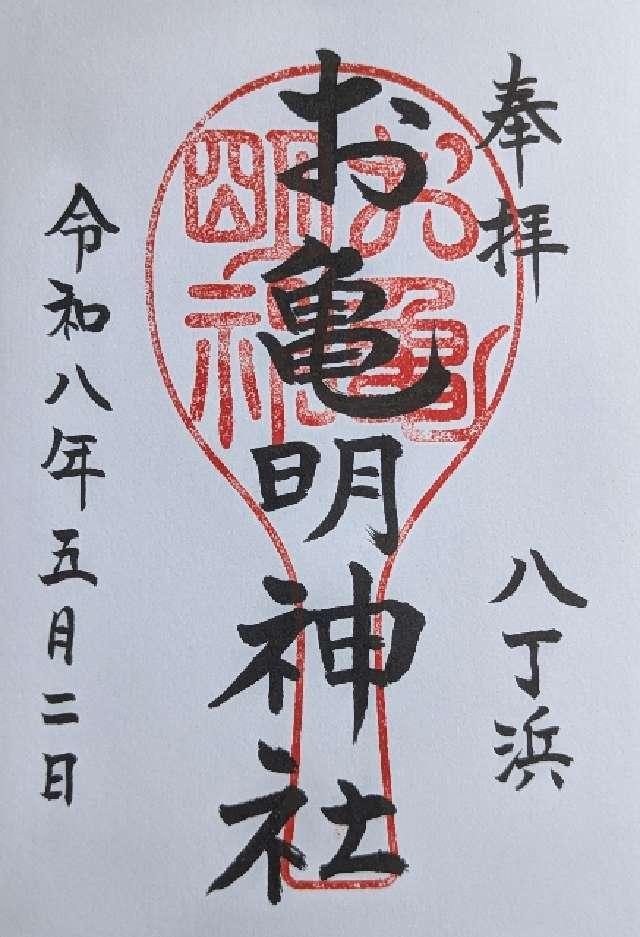 奉拝
八丁浜
お亀明神社
お亀
明神
令和八年五月二日